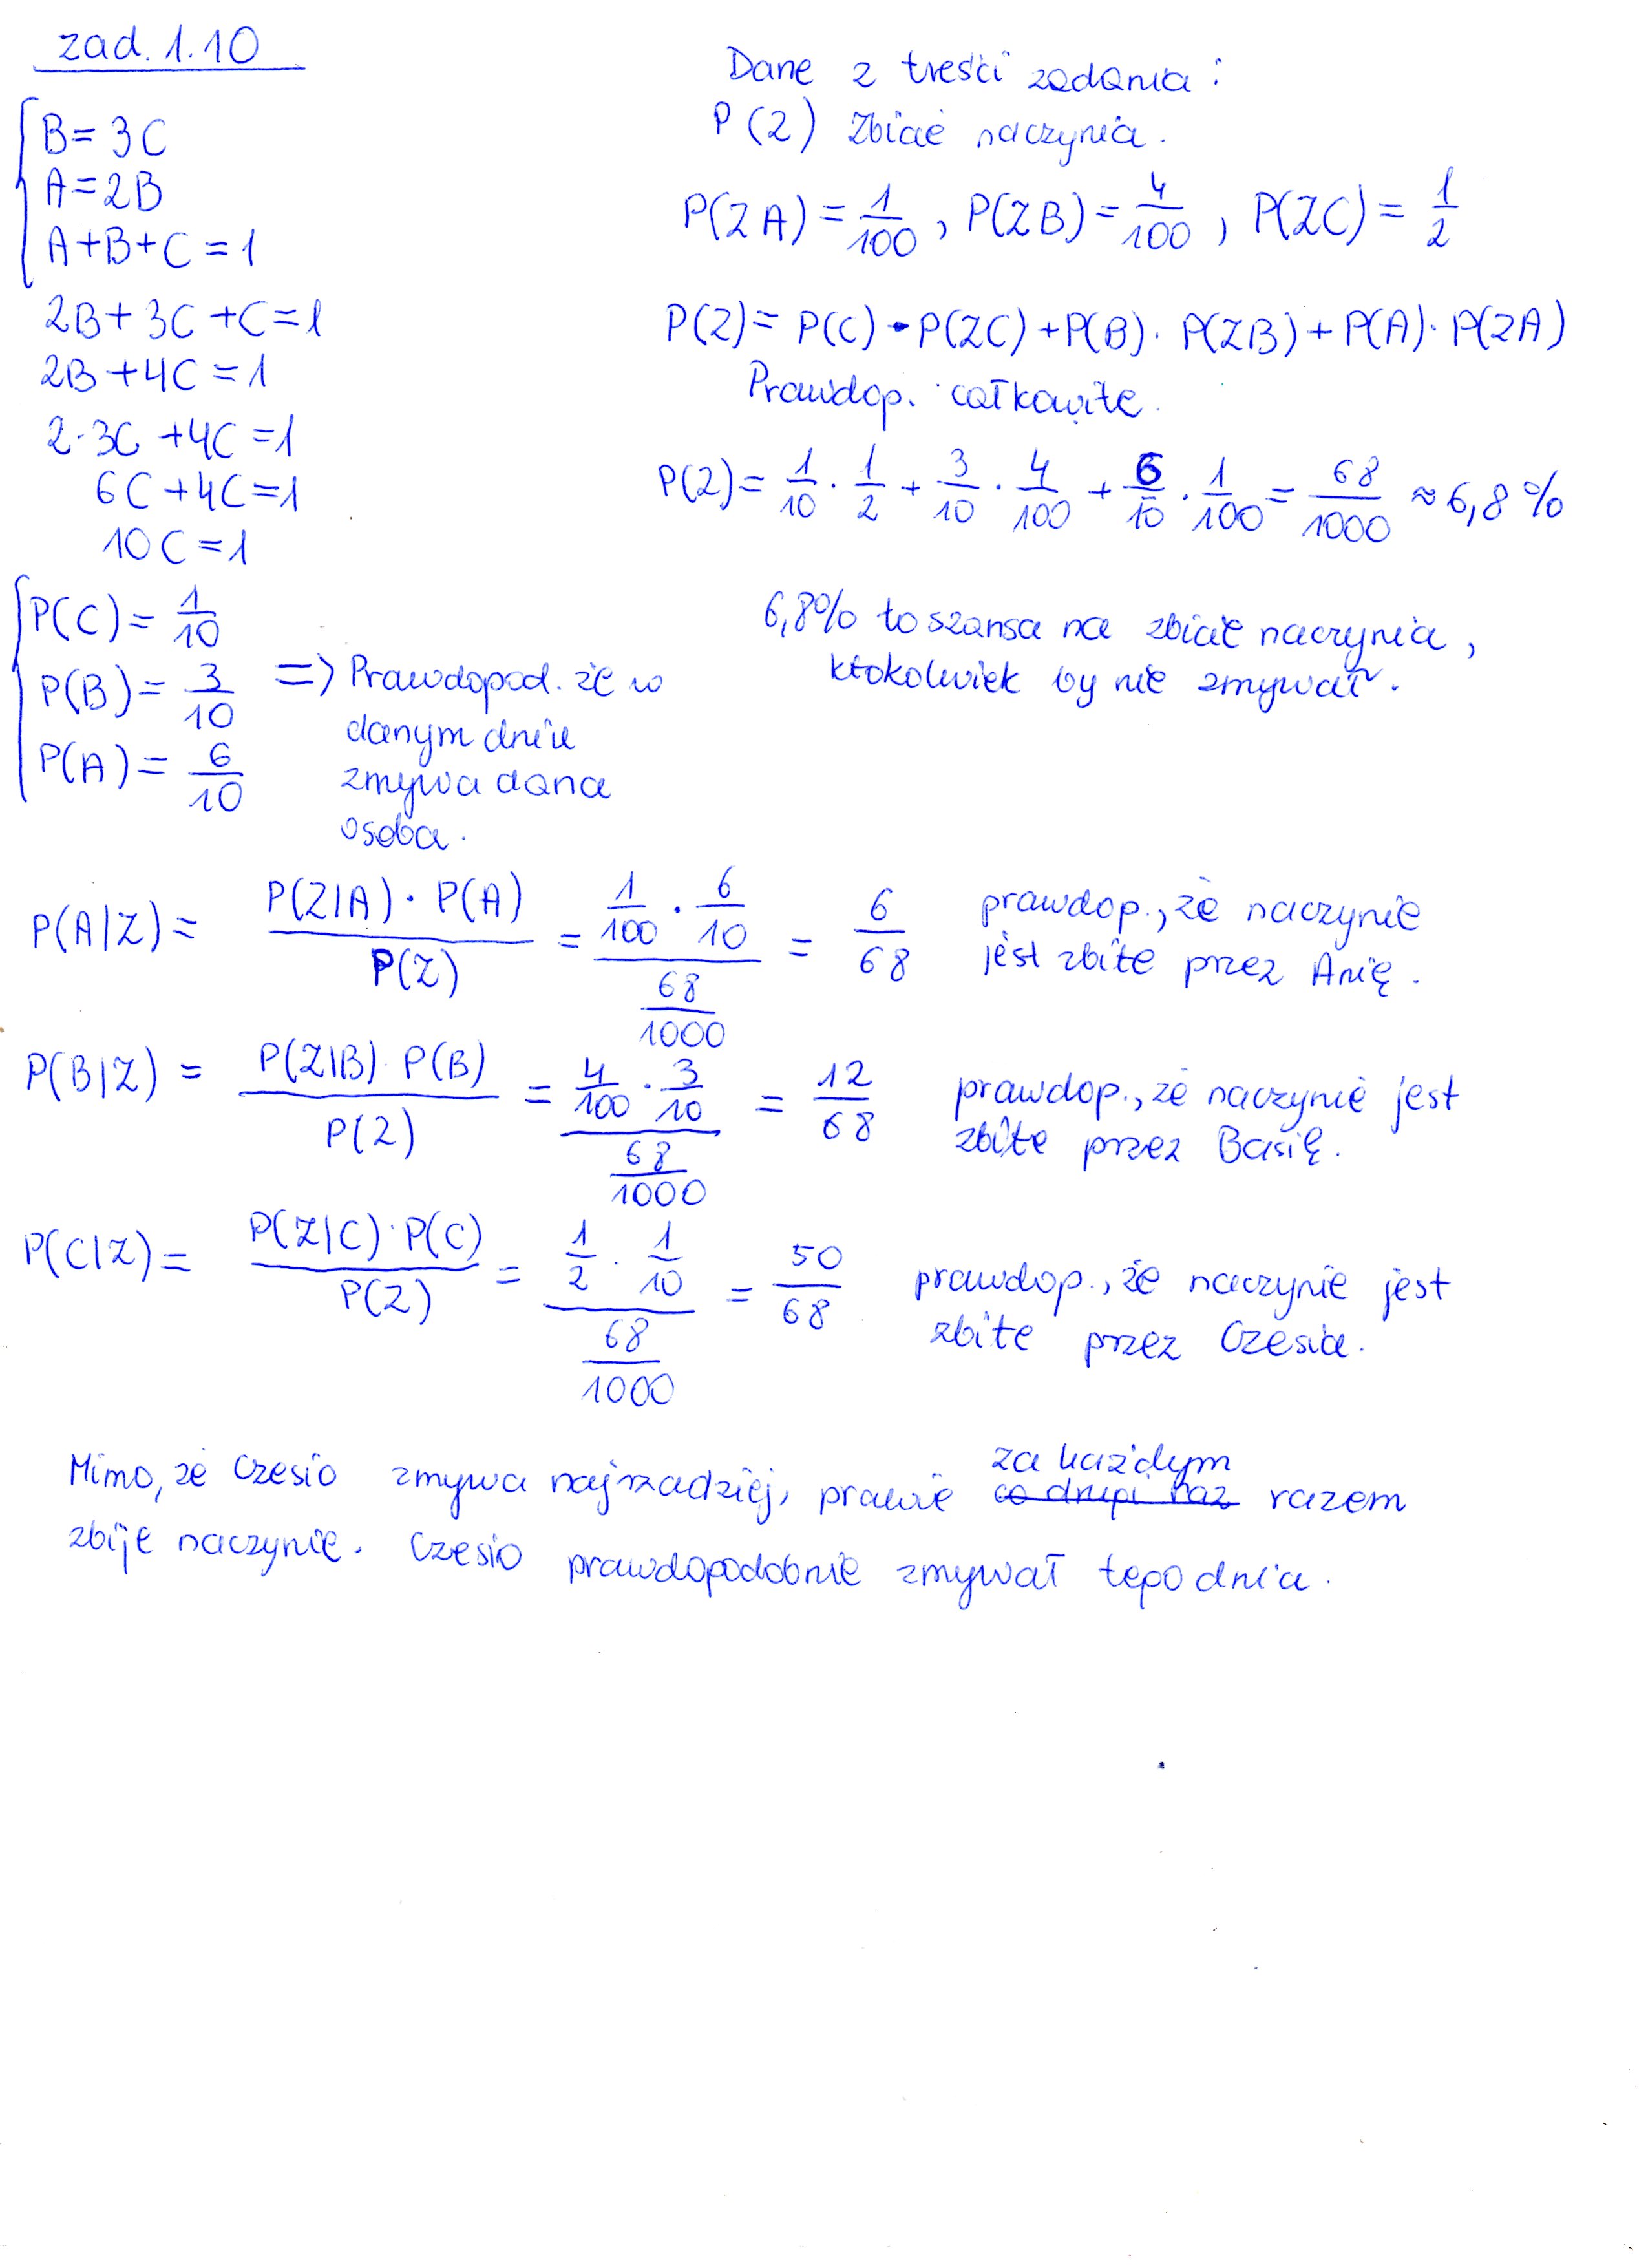 zad. 1.10
B = 3C
A = 2B
A+B+C = 1
2B + 3C + C = 1
2B + 4C = 1
2·3C + 4C = 1
6C + 4C = 1
10C = 1
P(C) = 1/10
P(B) = 3/10 => Prawdopod. że w
danym dniu
zmywa dana
osoba.
P(A) = 6/10
Dane z treści zadania:
P(Z) zbicie naczynia.
P(ZA) = 1/100, P(ZB) = 4/100, P(ZC) = 1/2
P(Z) = P(C) · P(ZC) + P(B) · P(ZB) + P(A) · P(ZA)
Prawdop. całkowite.
P(Z) = 1/10 · 1/2 + 3/10 · 4/100 + 6/10 · 1/100 = 68/1000 ≈ 6,8%
6,8% to szansa na zbicie naczynia,
ktokolwiek by nie zmywał.
P(A|Z) = P(Z|A) · P(A) / P(Z) = 1/100 · 6/10 / 68/1000 = 6/68 prawdop., że naczynie
jest zbite przez Anię.
P(B|Z) = P(Z|B) · P(B) / P(Z) = 4/100 · 3/10 / 68/1000 = 12/68 prawdop., że naczynie jest
zbite przez Basię.
P(C|Z) = P(Z|C) · P(C) / P(Z) = 1/2 · 1/10 / 68/1000 = 50/68 prawdop., że naczynie jest
zbite przez Czesia.
Mimo, że Czesio zmywa najrzadziej, prawie co drugi raz za każdym razem
zbije naczynie. Czesio prawdopodobnie zmywał tego dnia.